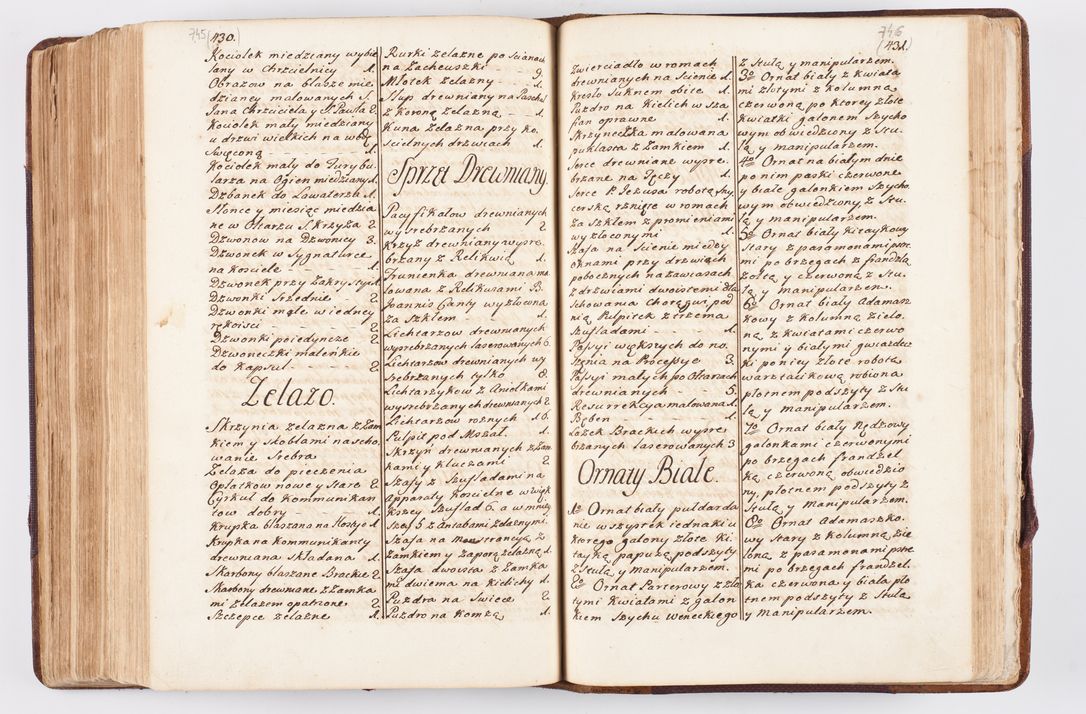 745
(430.
Kociołek miedziany wybie
lany w Chrzcielnicy 1.
Obrazow na blasze mie
dzianey malowanych S.
Jana Chrzciciela y S. Pawła 2.
Kociołek mały miedziany
u drzwi wielkich na wodę
Swięconą 1.
Kociołek mały do Turybu
larza na Ogien miedziany 1.
Dzbanek do Lawaterza 1.
Słonce y miesiąc miedzia
ne w Ołtarzu S. Krzyża 2.
Dzwonow na Dzwonicy 3.
Dzwonek w Sygnaturce
na kosciele 1.
Dzwonek przy Zakrystyi 1.
Dzwonki Srzednie 2.
Dzwonki małe w iedney
rękoiści 2.
Dzwonki poiedyncze 2.
Dzwoneczki maleńkie
do kapsuł 2.
Zelazo.
Skrzynia zelazna z Zam
kiem y Skoblami na scho
wanie Srebra
Zelaza do pieczenia
Opłatkow nowe y Stare 2.
Cyrkuł do kommunikan
tow dobry 1.
Krupka blaszana na Hostye 1.
Krupka na Kommunikanty
drewniana Składana 1.
Skarbony blaszane Brackie 2.
Skarbony drewniane z Zamka
mi Zelazem opatrzone 2.
Szczepce zelazne 1.
Rurki zelazne po scianach
na Zacheuszki 9.
Młotek Zelazny 1.
Słup drewniany na Paschał
z Koroną Zelazną 1.
Kuna Zelazna przy ko.
scielnych drzwiach 1.
Sprzęt Drewniany.
Pacyfikałow drewnianych
wysrebrzanych 2.
Krzyż drewniany wysre.
brzany z Relikwią 1.
Trunienka drewniana ma
lowana z Relikwiami B.
Joannis Canty wyzłocona
za Szkłem 1.
Lichtarzow drewnianych
wysrebrzanych laserowanych 6.
Lichtarzow drewnianych wy
srebrzanych tylko 8.
Lichtarzykow z Aniołkami
wysrebrzanych drewnianych 2.
Lichtarzow roznych 16.
Pulpit pod Mszał. 1.
Skrzyn drewnianych z Zam
kami y kluczami 2.
Szafy z Szufladami na
Apparaty kościelne w więk
kszey Szuflad 6. a w mniey
szey 5. z Antabami zelaznymi.
Szafa na Monstrancyą z
Zamkiem y Zaporą zelazną 1.
Szafa dwoista z Zamka
mi dwiema na kielichy 1.
Puzdra na Swiece 2.
Puzdro na Komżą 1.
746
(431.
Zwierciadło w romach
drewnianych na Scienie 1.
Krzesło Suknem obite 1.
Puzdro na Kielich w Sza
fian oprawne 1.
Skrzyneczka malowana
puklasta z Zamkiem 1.
Serce drewniane wysre.
brzane na Tęczy 1.
Serce P. Jezusa robotą Sny.
cerską rznięte w romach
za Szkłem z promieniami
wyzłoconymi 1.
Szafa na Scienie między
oknami przy drzwiach
pobocznych na zawiasach
z drzwiami dwoistemi dla
Schowania Chorągwi pod
nią Pulpitek z trzema
Szufladami 1.
Passyi większych do no.
szenia na Processye 3.
Passyi małych po Ołtarzach
drewnianych 5.
Resurrekcya malowana 1.
Bęben 1.
Lasek Brackich wysre
brzanych laserowanych 3.
Ornaty Białe.
1º Ornat biały pułdarda
nie w szystek iednaki u
ktorego galony złote Ki
tayką papuzą podszyty
z Stułą y manipularzem.
2º Ornat Parterowy z zło
tymi Kwiatami z galon
kiem Szychu weneckiego
z Stułą y manipularzem.
3º Ornat biały z kwiata
mi złotymi z kolumną
czerwoną po ktorey złote
kwiatki galonem Szycho
wym obwiedziony z Stu.
łą y manipularzem.
4º Ornat na białym dnie
po nim paski czerwone
y białe galonkiem Szycho
wym obwiedziony, z Stu.
łą y manipularzem.
5º Ornat biały kitaykowy
Stary z pasamonami proste
mi po brzegach z frandzlą
żółtą y czerwoną z Stu.
łą y manipularzem.
6º Ornat biały Adamasz
kowy z kolumną Zielo.
ną z kwiatami czerwo
nymi y białymi gwiazdecz
ki po niey złote robotą
warsztacikową robiona
płotnem podszyty z Stu
łą y manipularzem.
7º Ornat biały Nędzowy
galonkami czerwonymi
po brzegach frandzel
ką czerwoną obwiedzio
ny, płotnem podszyty z
Stułą y Manipularzem.
8º Ornat Adamaszko.
wy Stary z kolumną zie
loną z pasamonami proste
mi po brzegach frandzel.
ka czerwona y biała pło
tnem podszyty z Stułą
y Manipularzem.